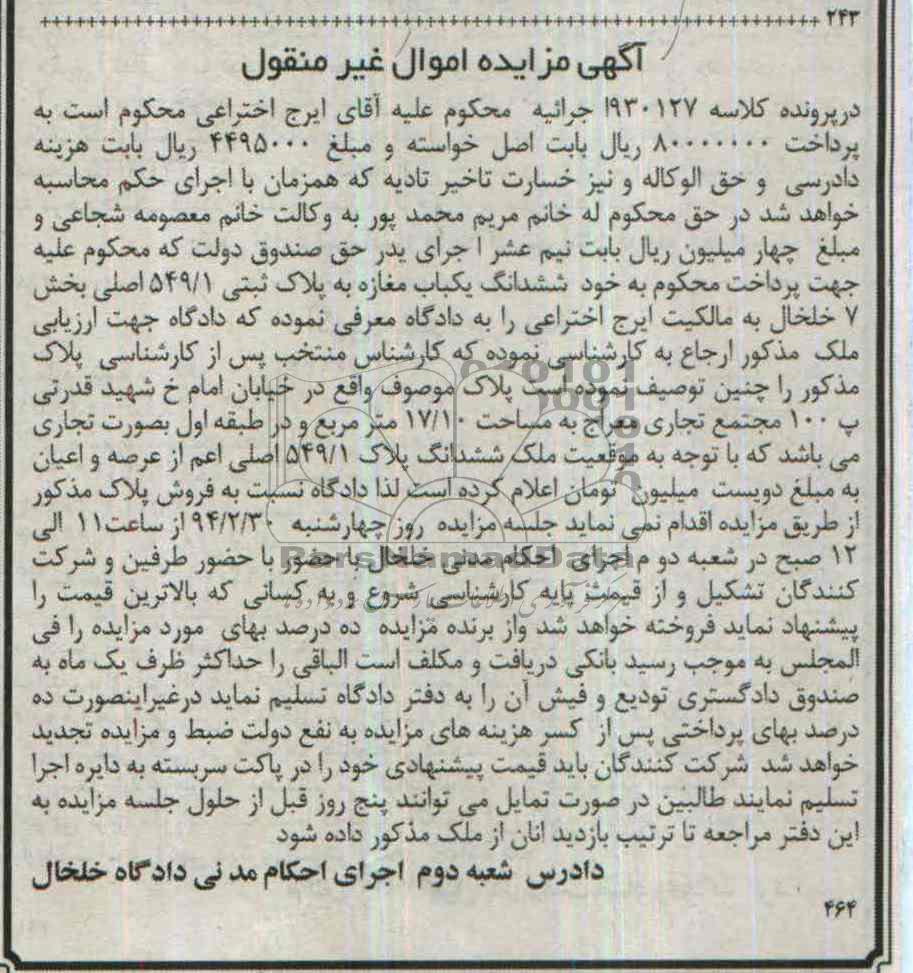 ۲۴۳
آگهی مزایده اموال غیر منقول
درپرونده کلاسه ۹۳۰۱۲۷ا جرائیه محکوم علیه آقای ایرج اختراعی محکوم است به
پرداخت ۸۰۰۰۰۰۰۰ ریال بابت اصل خواسته و مبلغ ۴۴۹۵۰۰۰ ریال بابت هزینه
دادرسی و حق الوکاله و نیز خسارت تاخیر تادیه که همزمان با اجرای حکم محاسبه
خواهد شد در حق محکوم له خانم مریم محمد پور به وکالت خانم معصومه شجاعی و
مبلغ چهار میلیون ریال بابت نیم عشر ا جرای یدر حق صندوق دولت که محکوم علیه
جهت پرداخت محکوم به خود ششدانگ یکباب مغازه به پلاک ثبتی ۵۴۹/۱ اصلی بخش
۷ خلخال به مالکیت ایرج اختراعی را به دادگاه معرفی نموده که دادگاه جهت ارزیابی
ملک مذکور ارجاع به کارشناسی نموده که کارشناس منتخب پس از کارشناسی پلاک
مذکور را چنین توصیف نموده است پلاک موصوف واقع در خیابان امام خ شهید قدرتی
پ ۱۰۰ مجتمع تجاری معراج به مساحت ۱۷/۱۰ متر مربع و در طبقه اول بصورت تجاری
می باشد که با توجه به موقعیت ملک ششدانگ پلاک ۵۴۹/۱ اصلی اعم از عرصه و اعیان
به مبلغ دویست میلیون تومان اعلام کرده است لذا دادگاه نسبت به فروش پلاک مذکور
از طریق مزایده اقدام نمی نماید جلسه مزایده روز چهارشنبه ۹۴/۲/۳۰ از ساعت۱۱ الی
۱۲ صبح در شعبه دو م اجرای احکام مدنی خلخال با حضور با حضور طرفین و شرکت
کنندگان تشکیل و از قیمت پایه کارشناسی شروع و به کسانی که بالاترین قیمت را
پیشنهاد نماید فروخته خواهد شد واز برنده مزایده ده درصد بهای مورد مزایده را فی
المجلس به موجب رسید بانکی دریافت و مکلف است الباقی را حداکثر ظرف یک ماه به
صندوق دادگستری تودیع و فیش آن را به دفتر دادگاه تسلیم نماید درغیراینصورت ده
درصد بهای پرداختی پس از کسر هزینه های مزایده به نفع دولت ضبط و مزایده تجدید
خواهد شد شرکت کنندگان باید قیمت پیشنهادی خود را در پاکت سربسته به دایره اجرا
تسلیم نمایند طالبین در صورت تمایل می توانند پنج روز قبل از حلول جلسه مزایده به
این دفتر مراجعه تا ترتیب بازدید انان از ملک مذکور داده شود
دادرس شعبه دوم اجرای احکام مد نی دادگاه خلخال
۴۶۴
ParsNamadData